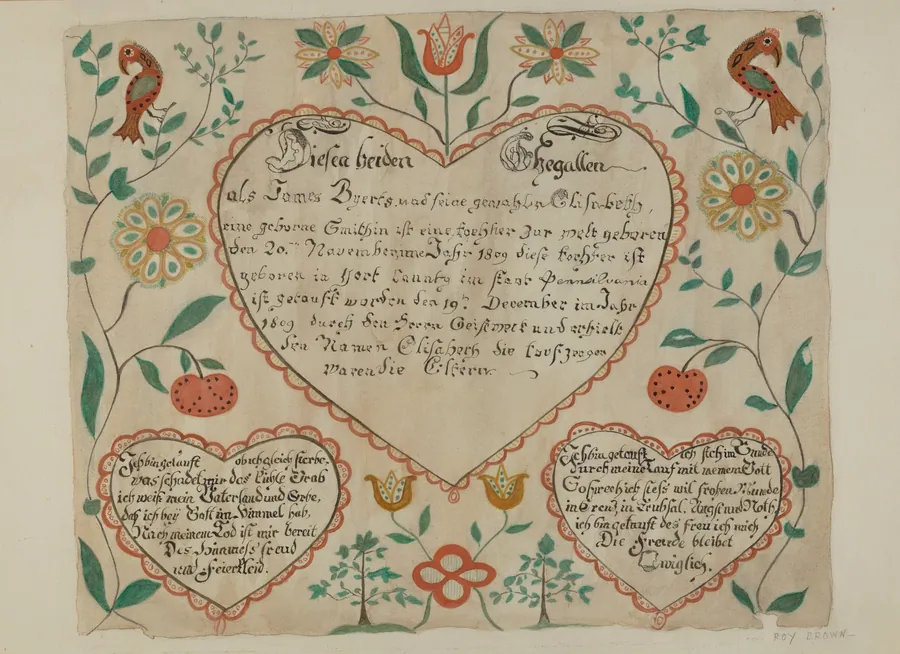 Diesen beiden Ehegatten
als James Byerts und seine gemahlin Elisabeth,
eine geborne Smithin ist eine tochter zur welt geboren
den 20ten November im Jahr 1809 diese tochter ist
geboren in York County im staat Pennsilvania
ist getauft worden den 19ten December im Jahr
1809 durch den Herrn Geistweit und erhielt
den Namen Elisabeth die taufzeugen
waren die Eltern.
Ich bin getauft ob ich gleich sterbe,
was schadet mir das kühle Grab
ich weiß mein Vaterland und Erbe,
daß ich bey Gott im Himmel hab,
Nach meinem Tod ist mir bereit
Des Himmels freud
und Feierkleid.
Ich bin getauft ich steh im Bunde
Durch meine Tauf mit meinem Gott
So sprech ich stets mit frohem Munde
in Creuz, in Trübsal, Angst und Noth,
ich bin getauft des freu ich mich
Die Freude bleibet
Ewiglich.
ROY BROWN